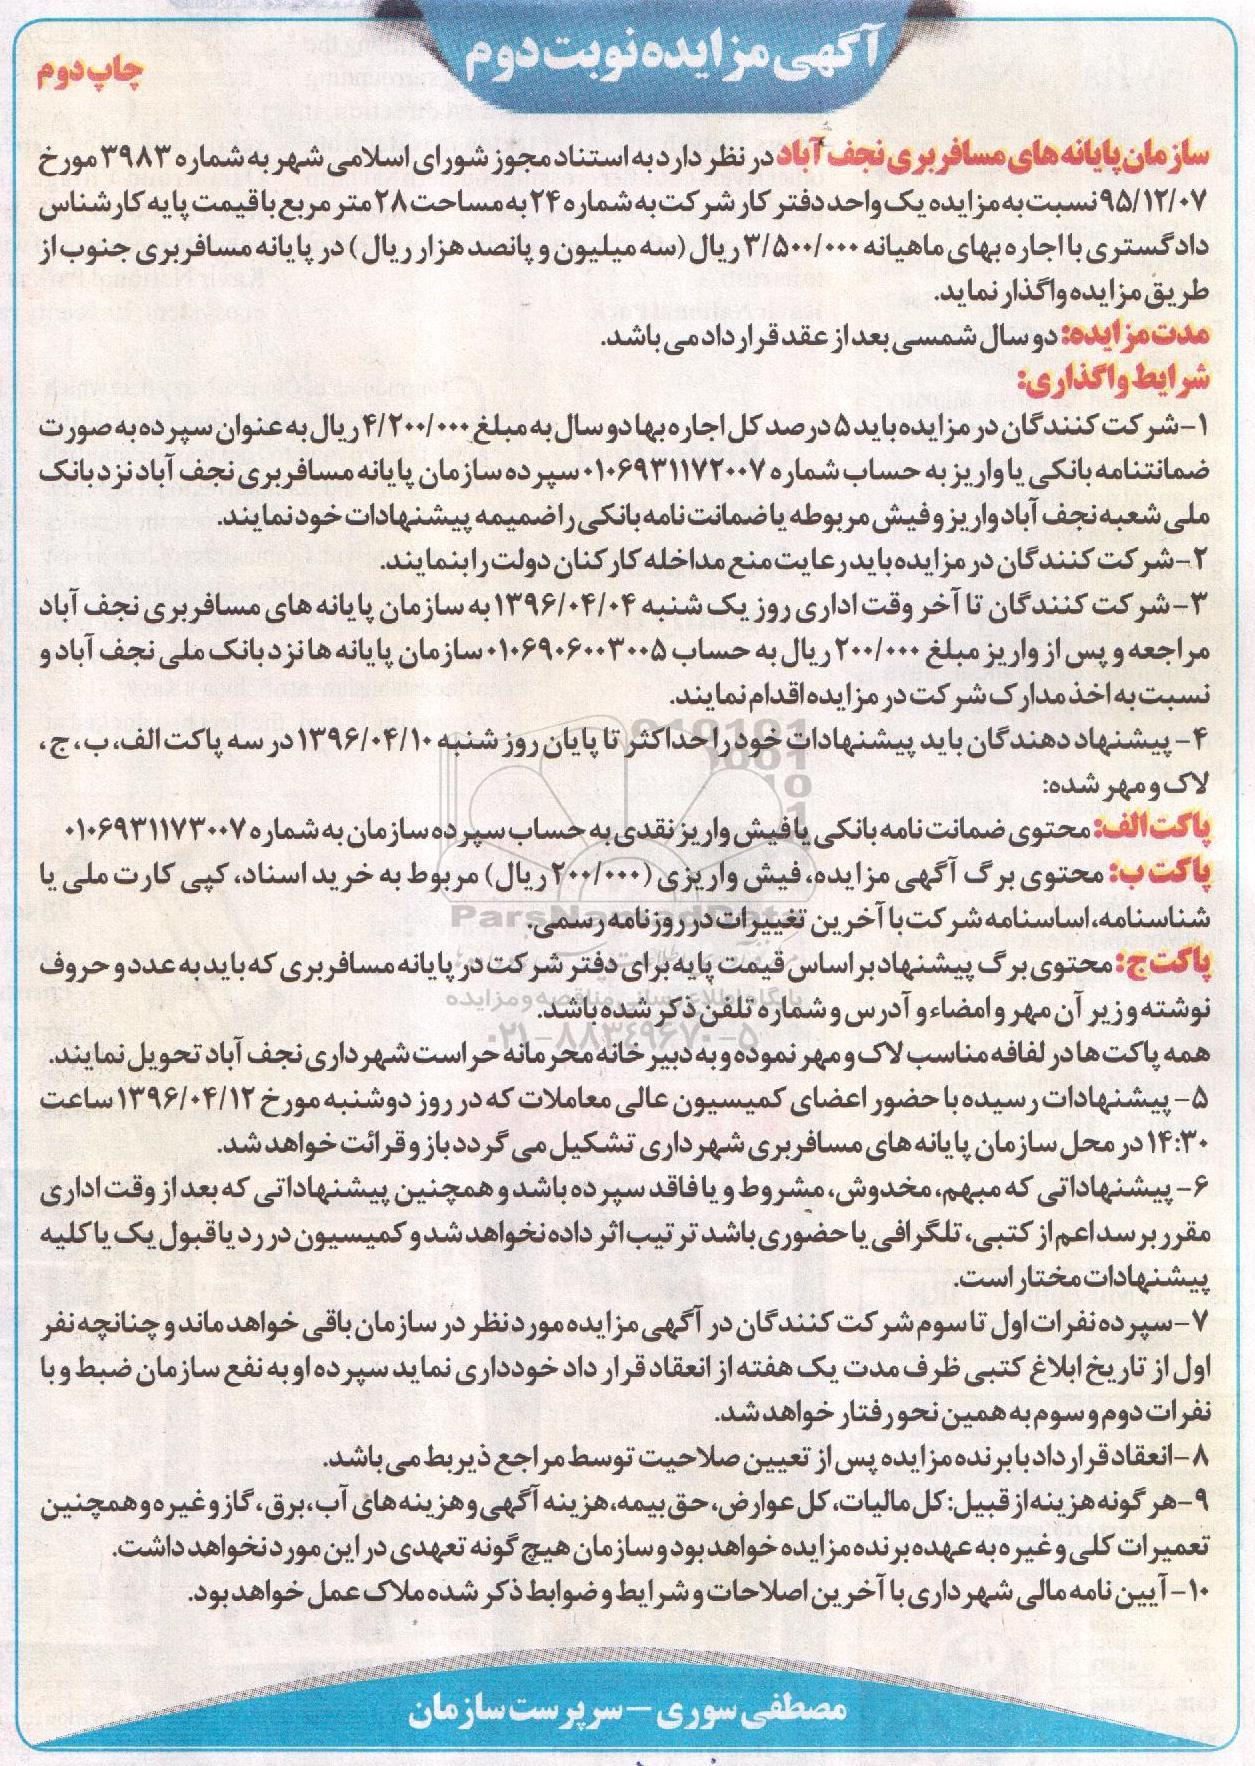 آگهی مزایده نوبت دوم
چاپ دوم
سازمان پایانه های مسافربری نجف آباد در نظر دارد به استناد مجوز شورای اسلامی شهر به شماره ۳۹۸۳ مورخ
۹۵/۱۲/۰۷ نسبت به مزایده یک واحد دفتر کار شرکت به شماره ۲۴ به مساحت ۲۸ متر مربع با قیمت پایه کارشناس
دادگستری با اجاره بهای ماهیانه ۳/۵۰۰/۰۰۰ ریال (سه میلیون و پانصد هزار ریال) در پایانه مسافربری جنوب از
طریق مزایده واگذار نماید.
مدت مزایده: دو سال شمسی بعد از عقد قرارداد می باشد.
شرایط واگذاری:
۱- شرکت کنندگان در مزایده باید ۵ درصد کل اجاره بها دو سال به مبلغ ۴/۲۰۰/۰۰۰ ریال به عنوان سپرده به صورت
ضمانتنامه بانکی یا واریز به حساب شماره ۰۱۰۶۹۳۱۱۷۲۰۰۷ سپرده سازمان پایانه مسافربری نجف آباد نزد بانک
ملی شعبه نجف آباد واریز و فیش مربوطه یا ضمانت نامه بانکی را ضمیمه پیشنهادات خود نمایند.
۲- شرکت کنندگان در مزایده باید رعایت منع مداخله کارکنان دولت را بنمایند.
۳- شرکت کنندگان تا آخر وقت اداری روز یک شنبه ۱۳۹۶/۰۴/۰۴ به سازمان پایانه های مسافربری نجف آباد
مراجعه و پس از واریز مبلغ ۲۰۰/۰۰۰ ریال به حساب ۰۱۰۶۹۰۶۰۰۳۰۰۵ سازمان پایانه ها نزد بانک ملی نجف آباد و
نسبت به اخذ مدارک شرکت در مزایده اقدام نمایند.
۴- پیشنهاد دهندگان باید پیشنهادات خود را حداکثر تا پایان روز شنبه ۱۳۹۶/۰۴/۱۰ در سه پاکت الف، ب، ج،
لاک و مهر شده:
پاکت الف: محتوی ضمانت نامه بانکی یا فیش واریز نقدی به حساب سپرده سازمان به شماره ۰۱۰۶۹۳۱۱۷۳۰۰۷
پاکت ب: محتوی برگ آگهی مزایده، فیش واریزی (۲۰۰/۰۰۰ ریال) مربوط به خرید اسناد، کپی کارت ملی یا
شناسنامه، اساسنامه شرکت با آخرین تغییرات در روزنامه رسمی.
ParsNamadData
پاکت ج: محتوی برگ پیشنهاد بر اساس قیمت پایه برای دفتر شرکت در پایانه مسافربری که باید به عدد و حروف
پایگاه اطلاع رسانی مناقصه و مزایده
نوشته و زیر آن مهر و امضاء و آدرس و شماره تلفن ذکر شده باشد.
۰۲۱-۸۸۳۴۹۶۷۰-۵
همه پاکت ها در لفافه مناسب لاک و مهر نموده و به دبیرخانه محرمانه حراست شهرداری نجف آباد تحویل نمایند.
۵- پیشنهادات رسیده با حضور اعضای کمیسیون عالی معاملات که در روز دوشنبه مورخ ۱۳۹۶/۰۴/۱۲ ساعت
۱۴:۳۰ در محل سازمان پایانه های مسافربری شهرداری تشکیل می گردد باز و قرائت خواهد شد.
۶- پیشنهاداتی که مبهم، مخدوش، مشروط و یا فاقد سپرده باشد و همچنین پیشنهاداتی که بعد از وقت اداری
مقرر برسد اعم از کتبی، تلگرافی یا حضوری باشد ترتیب اثر داده نخواهد شد و کمیسیون در رد یا قبول یک یا کلیه
پیشنهادات مختار است.
۷- سپرده نفرات اول تا سوم شرکت کنندگان در آگهی مزایده مورد نظر در سازمان باقی خواهد ماند و چنانچه نفر
اول از تاریخ ابلاغ کتبی ظرف مدت یک هفته از انعقاد قرار داد خودداری نماید سپرده او به نفع سازمان ضبط و با
نفرات دوم و سوم به همین نحو رفتار خواهد شد.
۸- انعقاد قرارداد با برنده مزایده پس از تعیین صلاحیت توسط مراجع ذیربط می باشد.
۹- هرگونه هزینه از قبیل: کل مالیات، کل عوارض، حق بیمه، هزینه آگهی و هزینه های آب، برق، گاز و غیره و همچنین
تعمیرات کلی و غیره به عهده برنده مزایده خواهد بود و سازمان هیچ گونه تعهدی در این مورد نخواهد داشت.
۱۰- آیین نامه مالی شهرداری با آخرین اصلاحات و شرایط و ضوابط ذکر شده ملاک عمل خواهد بود.
مصطفی سوری - سرپرست سازمان